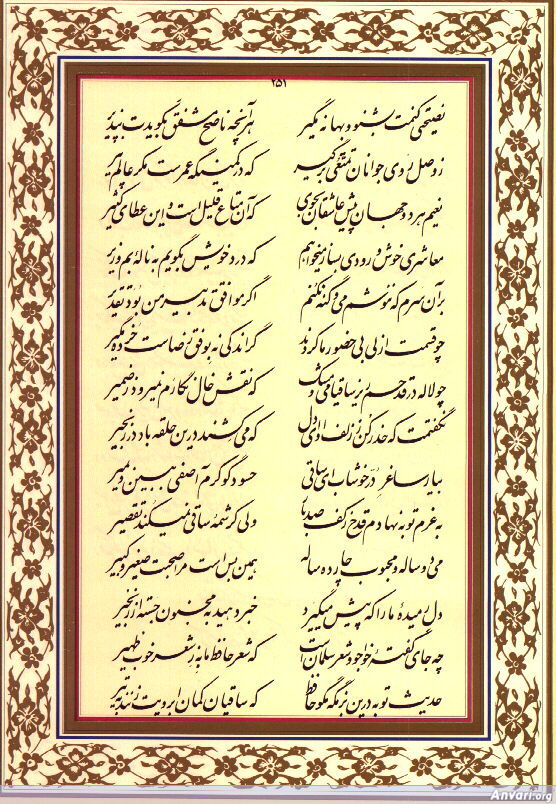 ۲۵۱
نصیحتی کنمت بشنو و بهانه مگیر هر آنچه ناصح مشفق بگویدت بپذیر
ز وصل روی جوانان تمتعی برگیر که در کمینگه عمرست مکر عالم پیر
نعیم هر دو جهان پیش عاشقان بجوی که آن متاع قلیل است و این عطای کثیر
معاشری خوش و رودی بساز میخواهم که درد خویش بگویم به ناله بم و زیر
بر آن سرم که ننوشم می و گنه نکنم اگر موافق تدبیر من بود تقدیر
چو قسمت ازلی بی حضور ما کردند گر اندکی نه بوفق رضاست خرده مگیر
چو لاله در قدحم ریز ساقیا می و مشک که نقش خال نگارم نمیرود ز ضمیر
نگفتمت که حذر کن ز زلف او ای دل که می کشند درین حلقه باد در زنجیر
بیار ساغر در خوشاب ای ساقی حسود گو کرم آصفی ببین و بمیر
به عزم توبه نهادم قدح ز کف صد بار ولی کرشمه ساقی نمیکند تقصیر
می دو ساله و محبوب چارده ساله همین بس است مرا صحبت صغیر و کبیر
دل رمیدهٔ ما را که پیش میگیرد خبر دهید به مجنون جسته از زنجیر
چه جای گفته خواجو و شعر سلمان است که شعر حافظ ما به ز شعر خوب ظهیر
حدیث توبه درین بزمگه مگو حافظ که ساقیان کمان ابرویت زنند به تیر
Anvari.org